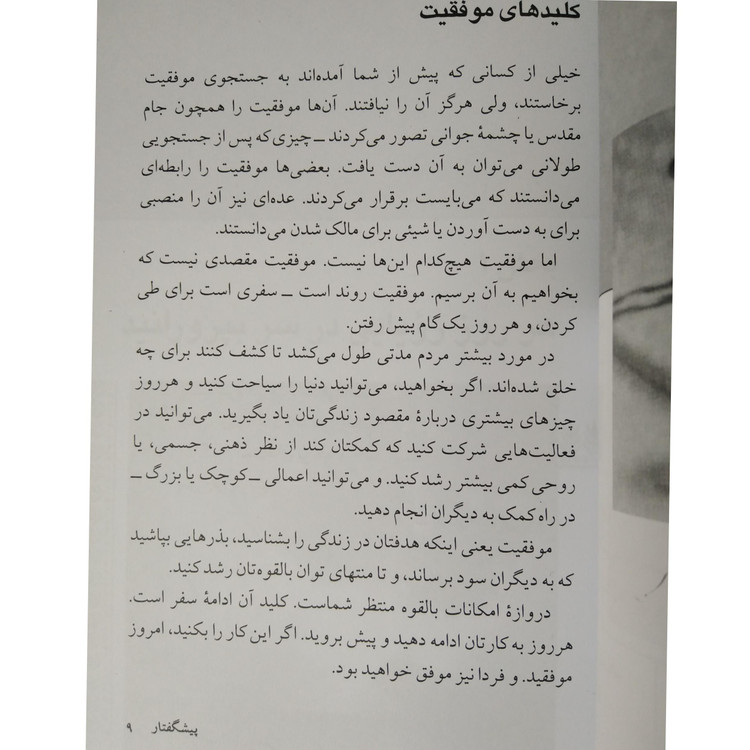 کلیدهای موفقیت
خیلی از کسانی که پیش از شما آمده‌اند به جستجوی موفقیت
برخاستند، ولی هرگز آن را نیافتند. آن‌ها موفقیت را همچون جام
مقدس یا چشمۀ جوانی تصور می‌کردند ــ چیزی که پس از جستجویی
طولانی می‌توان به آن دست یافت. بعضی‌ها موفقیت را رابطه‌ای
می‌دانستند که می‌بایست برقرار می‌کردند. عده‌ای نیز آن را منصبی
برای به دست آوردن یا شیئی برای مالک شدن می‌دانستند.
اما موفقیت هیچ‌کدام این‌ها نیست. موفقیت مقصدی نیست که
بخواهیم به آن برسیم. موفقیت روند است ــ سفری است برای طی
کردن، و هر روز یک گام پیش رفتن.
در مورد بیشتر مردم مدتی طول می‌کشد تا کشف کنند برای چه
خلق شده‌اند. اگر بخواهید، می‌توانید دنیا را سیاحت کنید و هرروز
چیزهای بیشتری دربارۀ مقصود زندگی‌تان یاد بگیرید. می‌توانید در
فعالیت‌هایی شرکت کنید که کمکتان کند از نظر ذهنی، جسمی، یا
روحی کمی بیشتر رشد کنید. و می‌توانید اعمالی ــ کوچک یا بزرگ ــ
در راه کمک به دیگران انجام دهید.
موفقیت یعنی اینکه هدفتان در زندگی را بشناسید، بذرهایی بپاشید
که به دیگران سود برساند، و تا منتهای توان بالقوه‌تان رشد کنید.
دروازۀ امکانات بالقوه منتظر شماست. کلید آن ادامۀ سفر است.
هرروز به کارتان ادامه دهید و پیش بروید. اگر این کار را بکنید، امروز
موفقید. و فردا نیز موفق خواهید بود.
پیشگفتار ۹